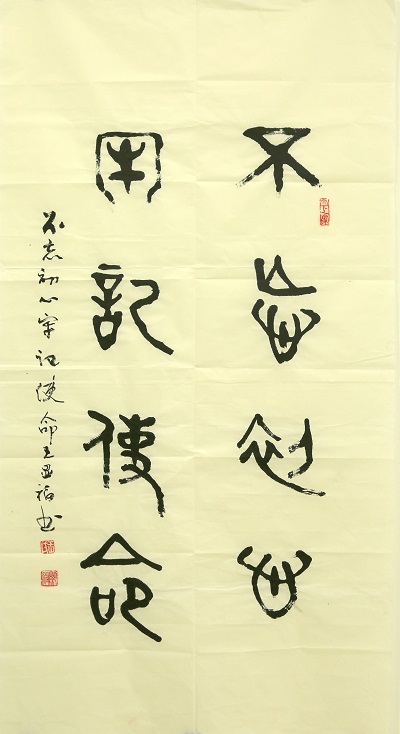 不忘初心
牢記使命
不忘初心牢记使命王亚福书